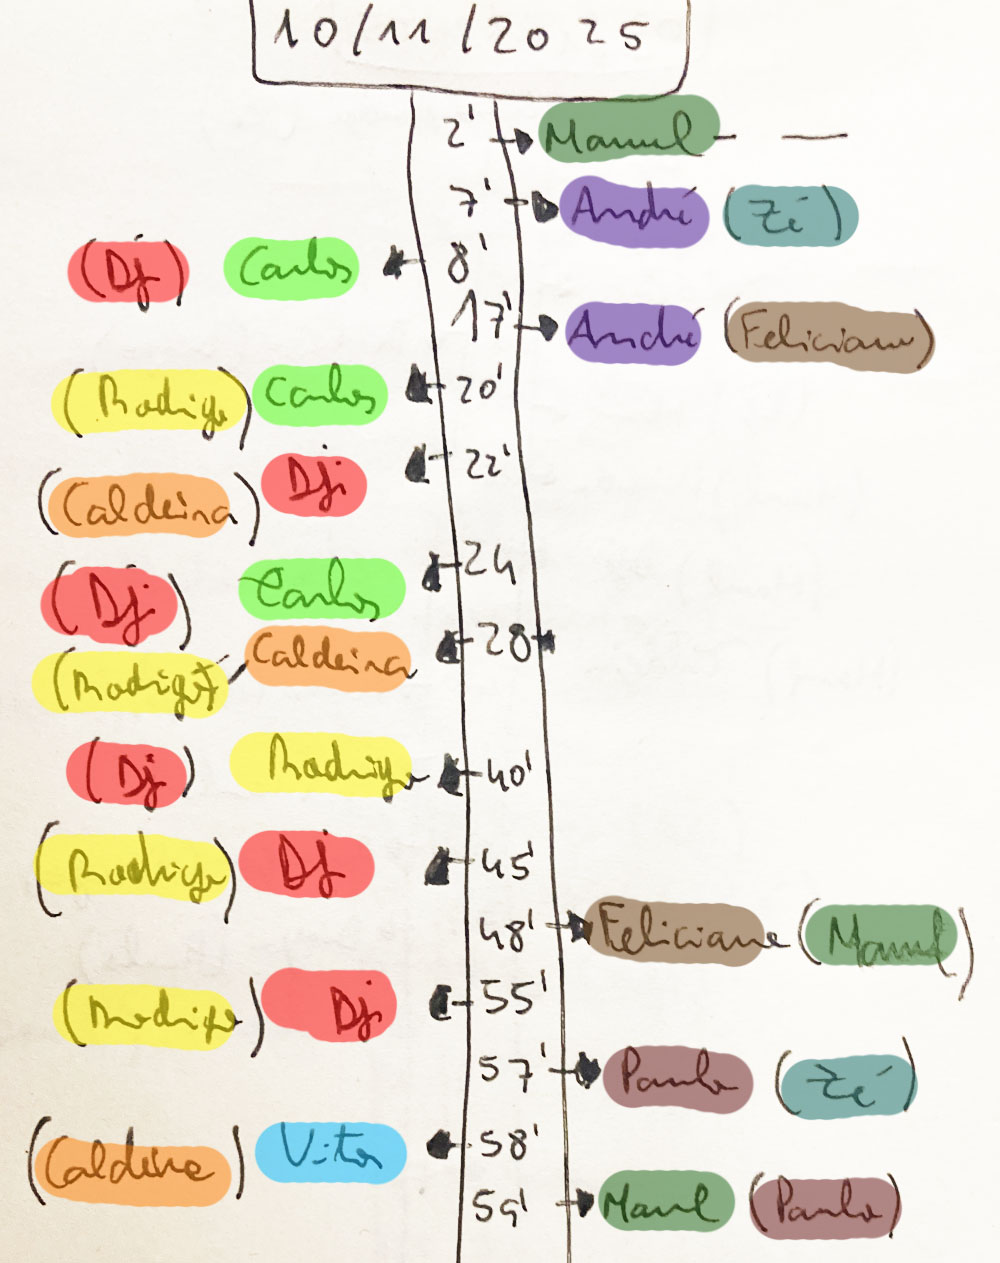 10/11/2025
2' Manuel - —
7' André (Zé)
(Dj) Carlos 8'
17' André (Feliciano)
(Rodrigo) Carlos 20'
(Caldeira) Dj 22'
(Dj) Carlos 24
(Rodrigo) Caldeira 28
(Dj) Rodrigo 40'
(Rodrigo) Dj 45'
48' Feliciano (Manuel)
(Rodrigo) Dj 55'
57' Paulo (Zé)
(Caldeira) Vitor 58'
59' Manuel (Paulo)